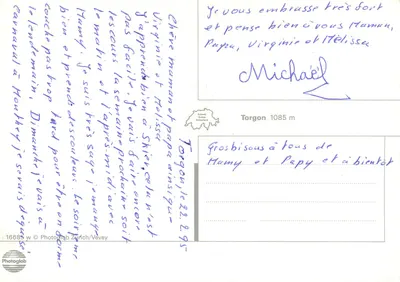 Torgon, le 22.2.95
Chère maman et papa ainsi que
Virginie et Mélissa
J'apprend bien à skier, cela n'est
pas facile. Je vais faire encore
les cours la semaine prochaine soit
le matin et l'après midi avec
Mamy. Je suis très sage, je mange
bien et prends des couleurs. Le soir, je me
couche pas trop tard pour être en forme
le lendemain. Dimanche je vais à
carnaval à Monthey je serais déguisé.
Je vous embrasse très fort
et pense bien à vous Maman,
Papa, Virginie et Mélissa
Michaël
Torgon 1085 m
Gros bisous à tous de
Mamy et Papy et à bientôt
© Photoglob Zürich/Vevey
Photoglob